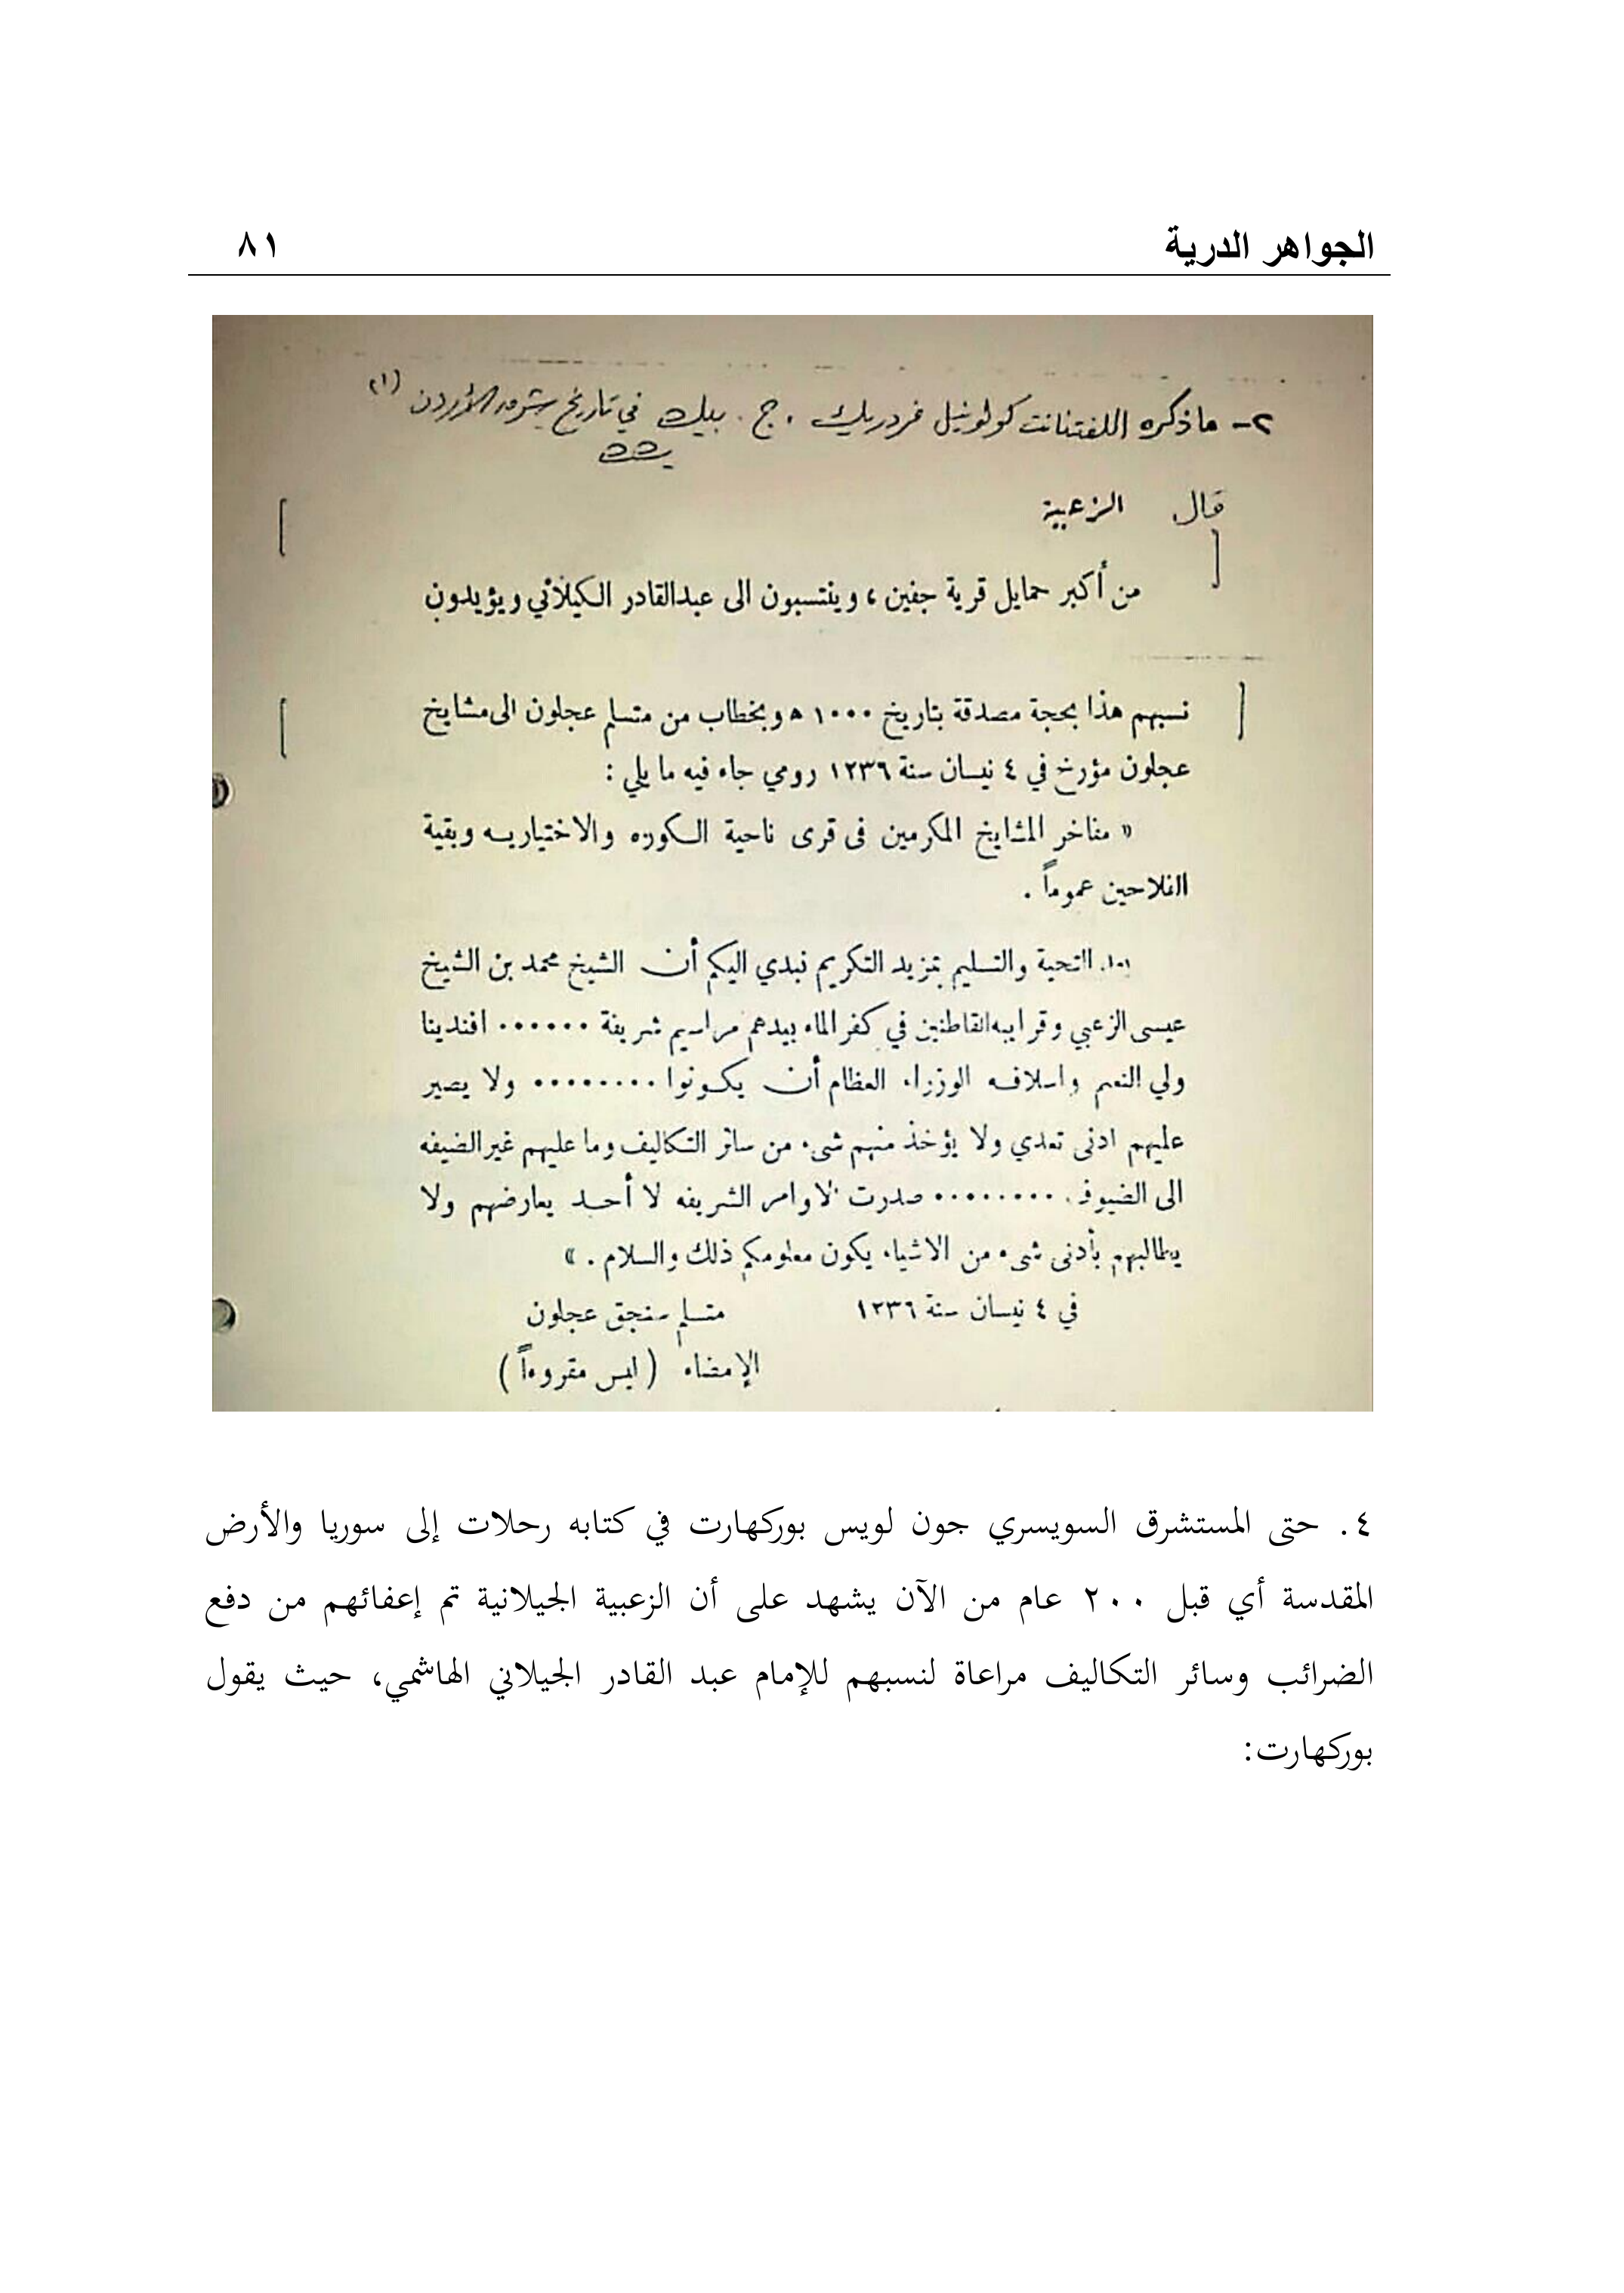 الجواهر الدرية ٨١
٢- ماذكره اللفتنانت كولونيل فردريك . ج . بيك في تاريخ شرق الأردن (١)
قال الزعبية
من أكبر حمايل قرية جفين ، وينتسبون الى عبدالقادر الكيلاني ويؤيدون
نسبهم هذا بحجة مصدقة بتاريخ ١٠٠٠ ه وبخطاب من متسلم عجلون الى مشايخ
عجلون مؤرخ في ٤ نيسان سنة ١٢٣٦ رومي جاء فيه ما يلي :
« مفاخر المشايخ المكرمين فى قرى ناحية الكوره والاختياريه وبقية
الفلاحين عموماً .
التحية والتسليم بمزيد التكريم نبدي اليكم أن الشيخ محمد بن الشيخ
عيسى الزعبي وقرايبه القاطنين في كفر الماء بيدهم مراسيم شريفة ...... افندينا
ولي النعم واسلافه الوزراء العظام أن يكونوا ........ ولا يصير
عليهم ادنى تعدي ولا يؤخذ منهم شىء من سائر التكاليف وما عليهم غير الضيفه
الى الضيوف ........ صدرت الاوامر الشريفه لا أحد يعارضهم ولا
يطالبهم بأدنى شىء من الاشياء يكون معلومكم ذلك والسلام . »
في ٤ نيسان سنة ١٢٣٦ متسلم سنجق عجلون
الإمضاء ( ليس مقروءاً )
٤. حتى المستشرق السويسري جون لويس بوركهارت في كتابه رحلات إلى سوريا والأرض
المقدسة أي قبل ٢٠٠ عام من الآن يشهد على أن الزعبية الجيلانية تم إعفائهم من دفع
الضرائب وسائر التكاليف مراعاة لنسبهم للإمام عبد القادر الجيلاني الهاشمي، حيث يقول
بوركهارت: